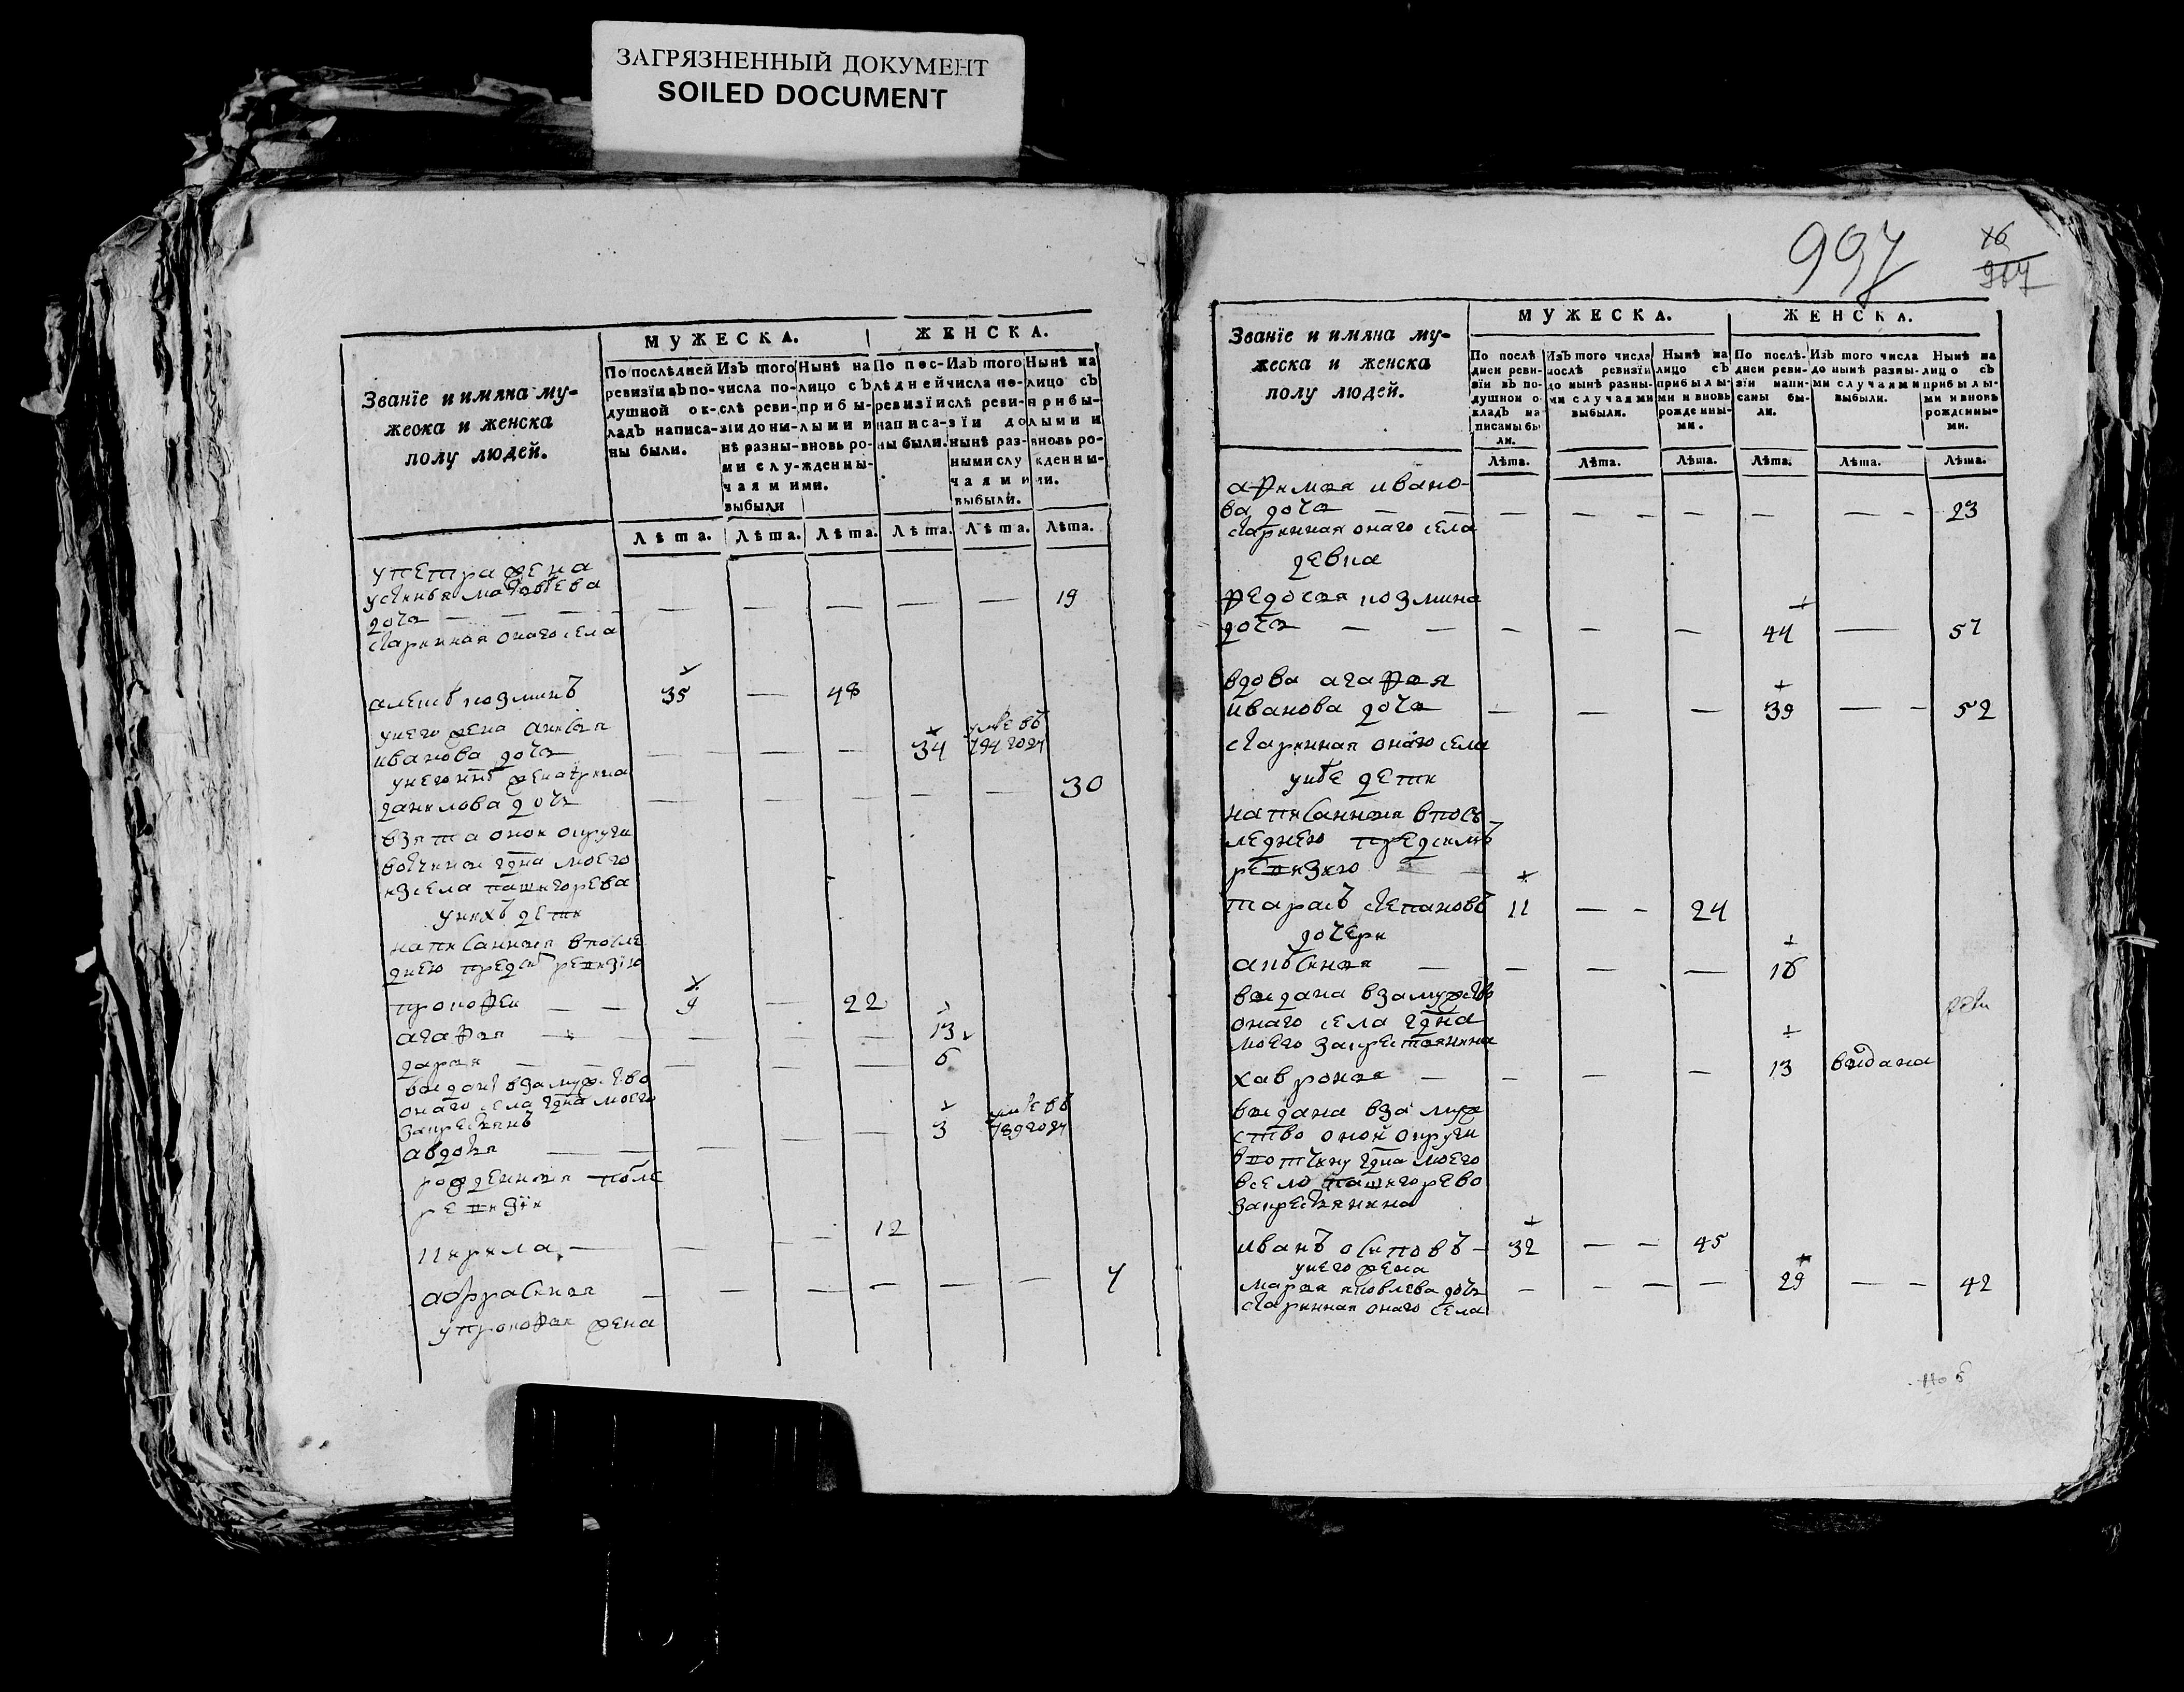 ЗАГРЯЗНЕННЫЙ ДОКУМЕНТ
SOILED DOCUMENT
Званїе и имяна му-
жеска и женска
полу людей.
МУЖЕСКА.
ЖЕНСКА.
По послѣдней ревизїи въ по-душной ок-ладъ написа-ны были.
Изъ того числа по-слѣ реви-зїи до ны-нѣ разны-ми слу-чаями выбыли
Нынѣ на лицо съ прибы-лыми и вновь ро-жденны-ми.
По пос-лѣдней ревизїи написа-ны были.
Изъ того числа по-слѣ реви-зїи до нынѣ раз-ными слу чаями выбыли.
Нынѣ на лицо съ прибы-лыми и вновь ро-жденны-ми.
Лѣта. Лѣта. Лѣта. Лѣта. Лѣта. Лѣта.
у петра жена
устинья матвѣева
дочь — — — — — — — 19
старинная онаго села
алексѣ козминъ 35 — 48
у него жена анисья
иванова дочь — — — 34 умре въ 794 году
у него жена
данилова дочь — — — — — 30
взята оной округи
вотчины гдна моего
из села
у нихъ дети
написанныя в после
днею пред ревизїю
прокофеи — — 9 — 22
агафья — — — — 13
дарья — — — — 6
выданы взамужство
онаго села гдна моего
за крестьянъ
авдотья — — — — 3 умре въ 789 году
рожденныя после
ревизїи
кирила — — — 12
афросинья — — — — — — 7
у прокофья жена
997
16
Званїе и имяна му-
жеска и женска
полу людей.
МУЖЕСКА.
ЖЕНСКА.
По послѣ дней реви-зїи въ по-душной о-кладъ на-писаны бы-ли.
Изъ того числа послѣ ревизїи до нынѣ разны-ми случаями выбыли.
Нынѣ на лицо съ прибылы-ми и вновь рожденны-ми.
По послѣ-дней реви-зїи напи-саны бы-ли.
Изъ того числа до нынѣ разны-ми случаями выбыли.
Нынѣ на лицо съ прибылы-ми и вновь рожденны-ми.
Лѣта. Лѣта. Лѣта. Лѣта. Лѣта. Лѣта.
афимья ивано-
ва дочь — — — — — — — — 23
старинная онаго села
девка
федосья козмина
дочь — — — — — 44 — 57
вдова агафья
иванова дочь — — — 39 — — 52
старинная онаго села
у нѣе дети
написанныя в посъ-
леднею пред симъ
ревизию — —
тарасъ степановъ 11 — — 24
дочери
аксинья — — — — 16
выдана взамужство
онаго села гдна
моего за крестьянина
хаврония — — — 13 выдана
выдана взамуж
ство оной округи
в вотчину гдна моего
в село
за крестьянина
иванъ осиповъ — 32 — — 45
у него жена
марья яковлева дочь — — — — 29 — — 42
старинная онаго села